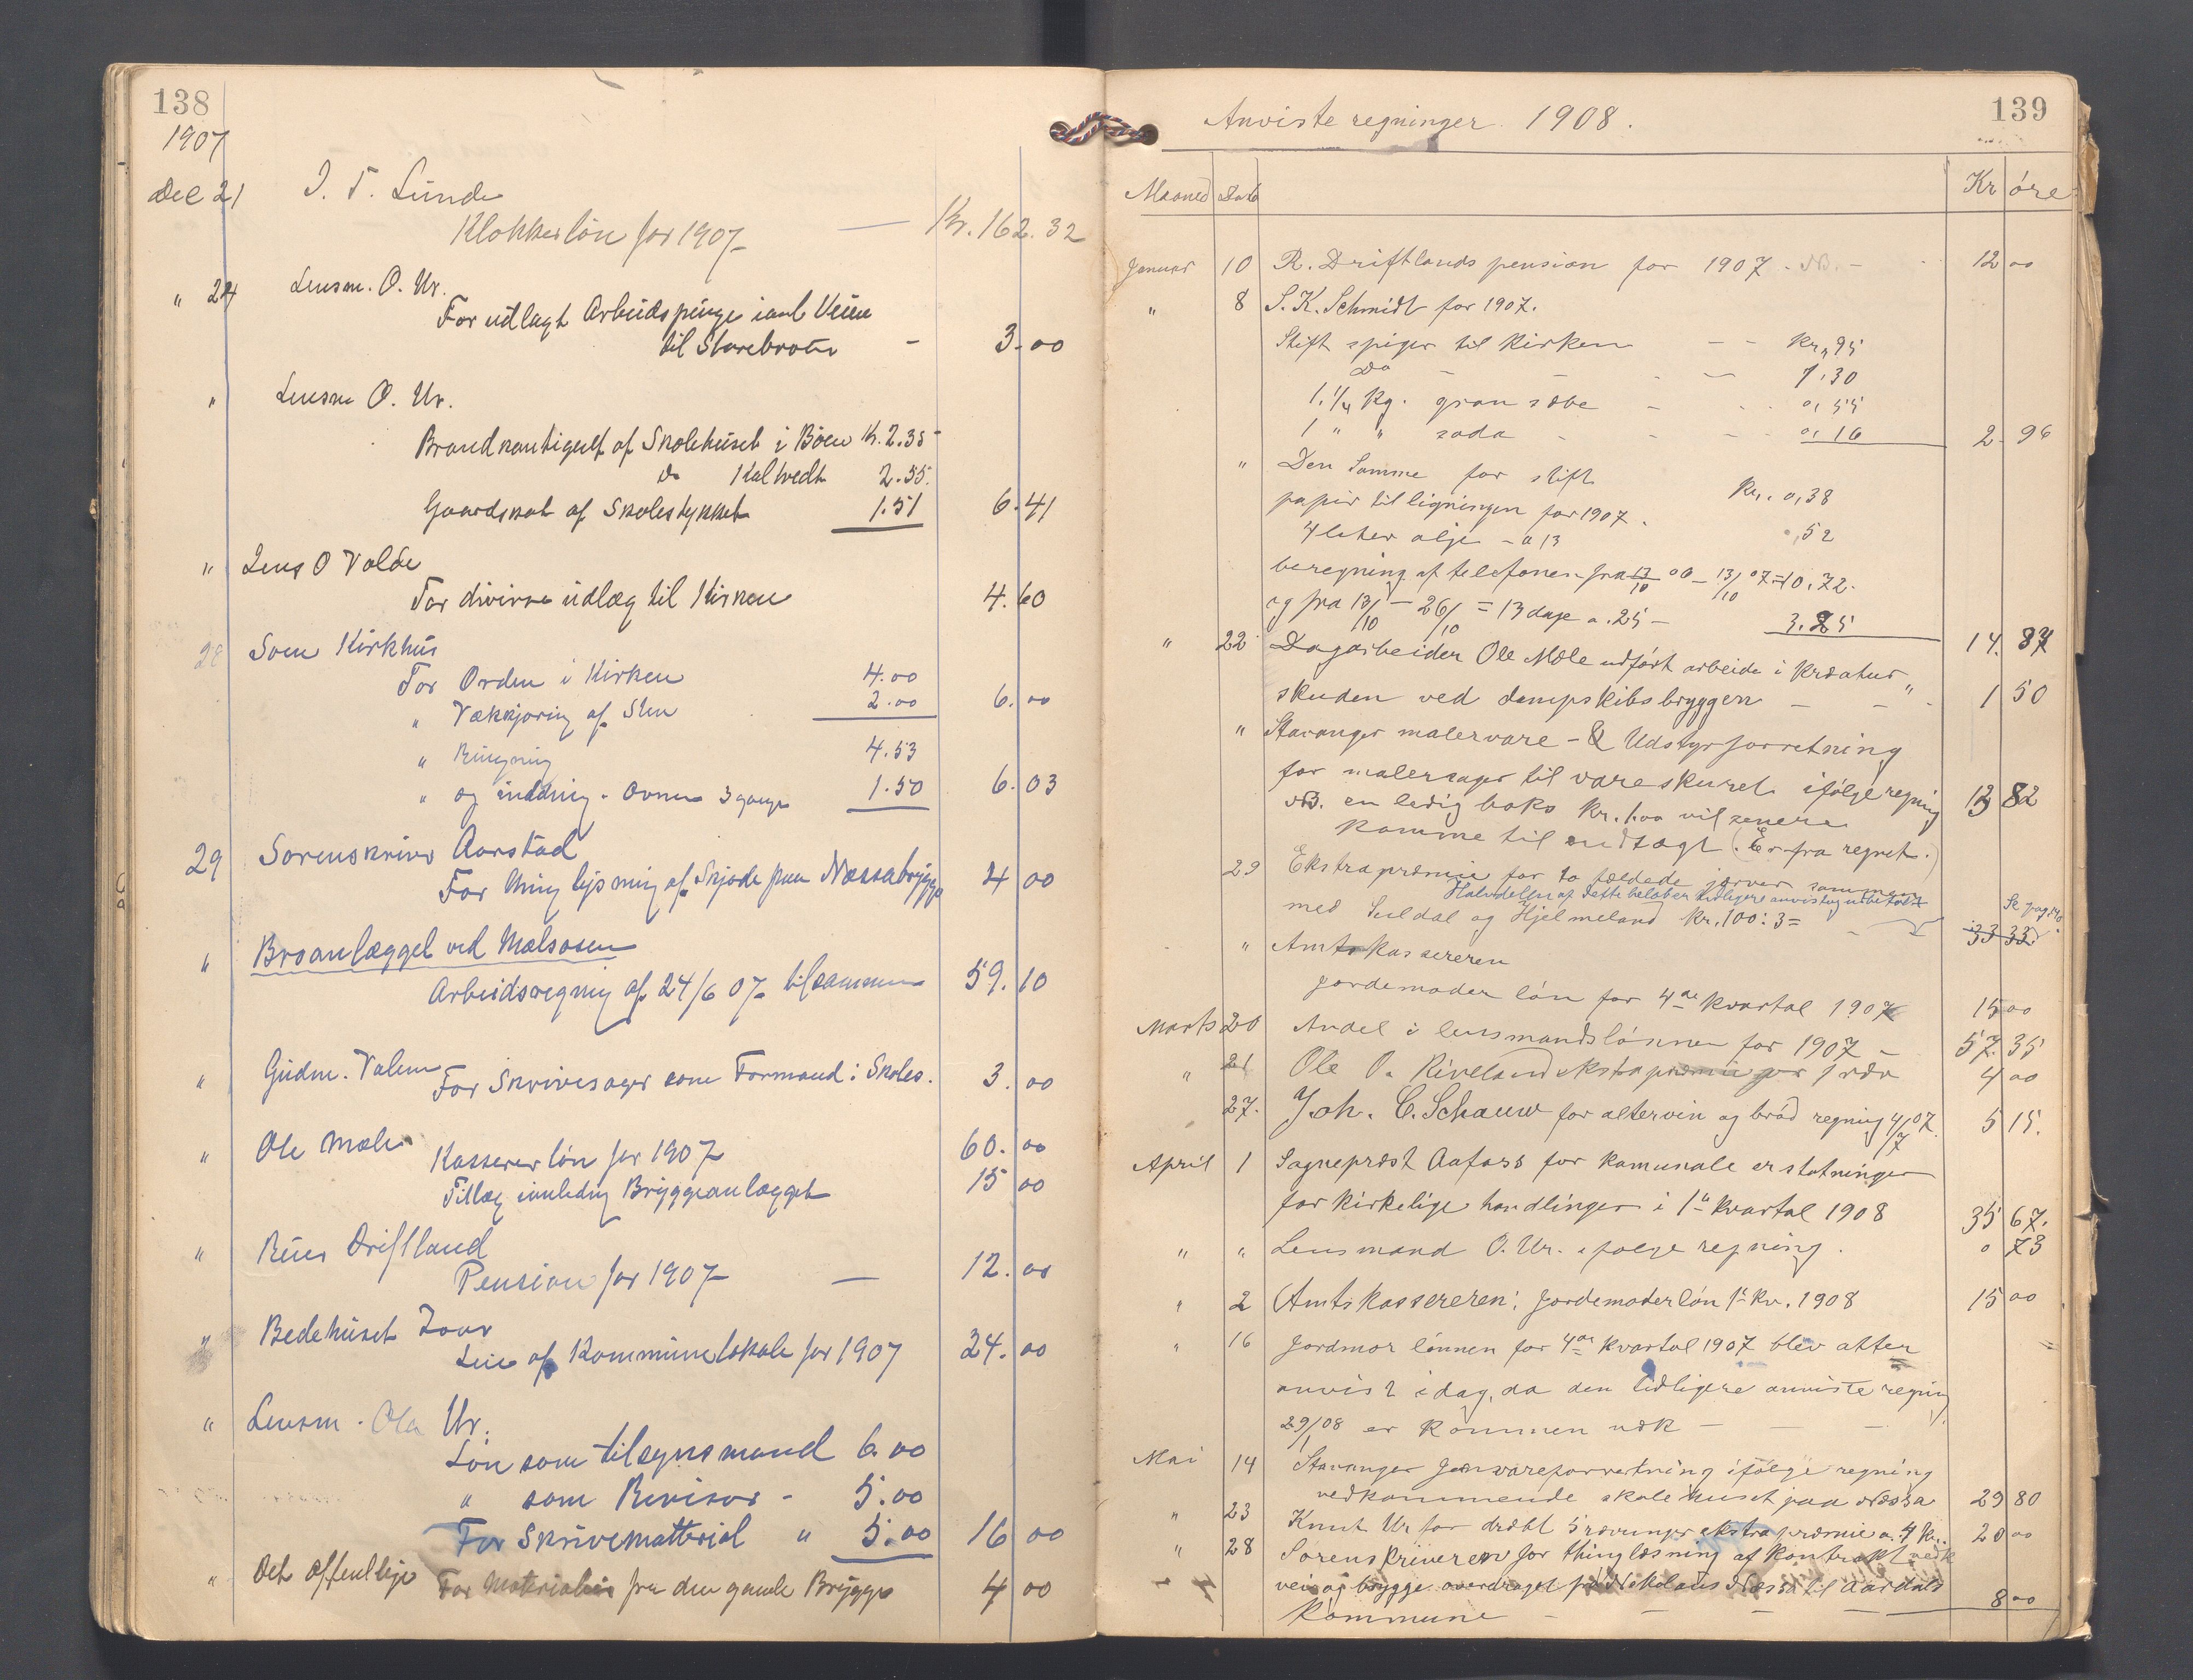 138
1907
Dec 21 I. T. Lunde
Klokkerløn for 1907 — Kr. 162.32
" 24 Lensm. O. Ur.
For udlagt Arbeidspenge ianl Veien
til Storebroen - 3.00
" Lensm O. Ur.
Brandkontigent af Skolehuset i Bøen Kr. 2.35
Do Kaltvedt 2.55.
Gaardskat af Skolestykket 1.51 6.41
" Jens O Valde
For diverse udlæg til Kirken 4.60
28 Soen Kirkhus
For Orden i Kirken 4.00
" Vækkjøring af Sten 2.00 6.00
" Ringning 4.53
" og Ovnen 3 gange 1.50 6.03
29 Sorenskriver Aarstad
For thinglysning af Skjøde paa Næssabrygge 4 00
" Broanlægget ved Mælsosen
Arbeidsregning af 24/6 07 tilsammen 59.10
" Gudm. Valem
For Skrivesager som Formand i Skoles. 3.00
" Ole Mæle
Kassererløn for 1907 60.00
Tillæg Bryggeanlægget 15 00
" Driftland
Pension for 1907 — 12.00
" Bedehuset Zoar
Leie af Kommunelokale for 1907 24.00
" Lensm. Ola Ur.
Løn som tilsynsmand 6.00
" som Revisor - 5.00
For Skrivemateriel " 5.00 16 00
" Det offentlige For Materialier fra den gamle Brygge 4 00
139
Anviste regninger 1908.
Maaned Dato Kr øre
Januar 10 R. Driftlands pension for 1907 - NB. - 12 00
" 8 S. K. Schmidt for 1907.
Stift spiger til Kirken - - Kr. " 95
Do - - - 1.30
1.1/4 Kg. grøn sæbe - - 0,55
1 " " soda - - 0,16 2 - 96
" Den Samme for stift
papir til ligningen for 1907. Kr. 0,38
4 liter olje - a 13 0,52
beregning af telefonen fra 13/10 06 - 13/10 07 = 10.72.
og fra 13/10 - 26/10 = 13 dage a. 25 - 3.25 14.87
" 22 Dagarbeider Ole Mæle udført arbeide i Kreatur
skuden ved dampskibsbryggen - - " 1 50
" Stavanger malervare - & Udstyrforretning
for malersager til vareskuret ifølge regning 12 82
NB. en ledig boks Kr. 1.00 vil senere
komme til indtægt. (Er fra regnet.)
29 Ekstrapræmie for to fældede jærver sammen
Halvdelen af dette beløber tidligere anvist og udbetalt
med Suldal og Hjelmeland Kr. 100:3= - 33 33
Se pag.
" Amtskassereren
Jordemoder løn for 4de Kvartal 1907 15 00
Marts 20 Andel i lensmandslønnen for 1907 - 57.35
" 21 Ole O. Riveland ekstrapræmie for 1 ræv 4 00
" 27. Joh. C. Schauw for altervin og brød regning 4/7 07. 5 15.
April 1 Sogneprest Aafoss for komunale erstatninger
for kirkelige handlinger i 1ste Kvartal 1908 35 67.
" " Lensmand O. Ur. ifølge regning. 0 73
" 2 Amtskassereren: Jordemoderløn 1ste Kv. 1908 15 00
" 16 Jordmor lønnen for 4de kvartal 1907 blev atter
anvist idag, da den tidligere anviste regning
29/1 08 er kommen væk -
Mai 14 Stavanger Jernvareforretning ifølge regning
vedkommende skolehuset paa Næssa 29 80
" 23 Knut Ur for dræbt 5 rævunger ekstrapræmie a. 4 Kr. 20 00
" 28 Sorenskriveren for thinglæsning af Kontrakt vedk
vei og brygge overdraget fra Nikolaus Næssa til Aardals
Kommune - - - 8 00